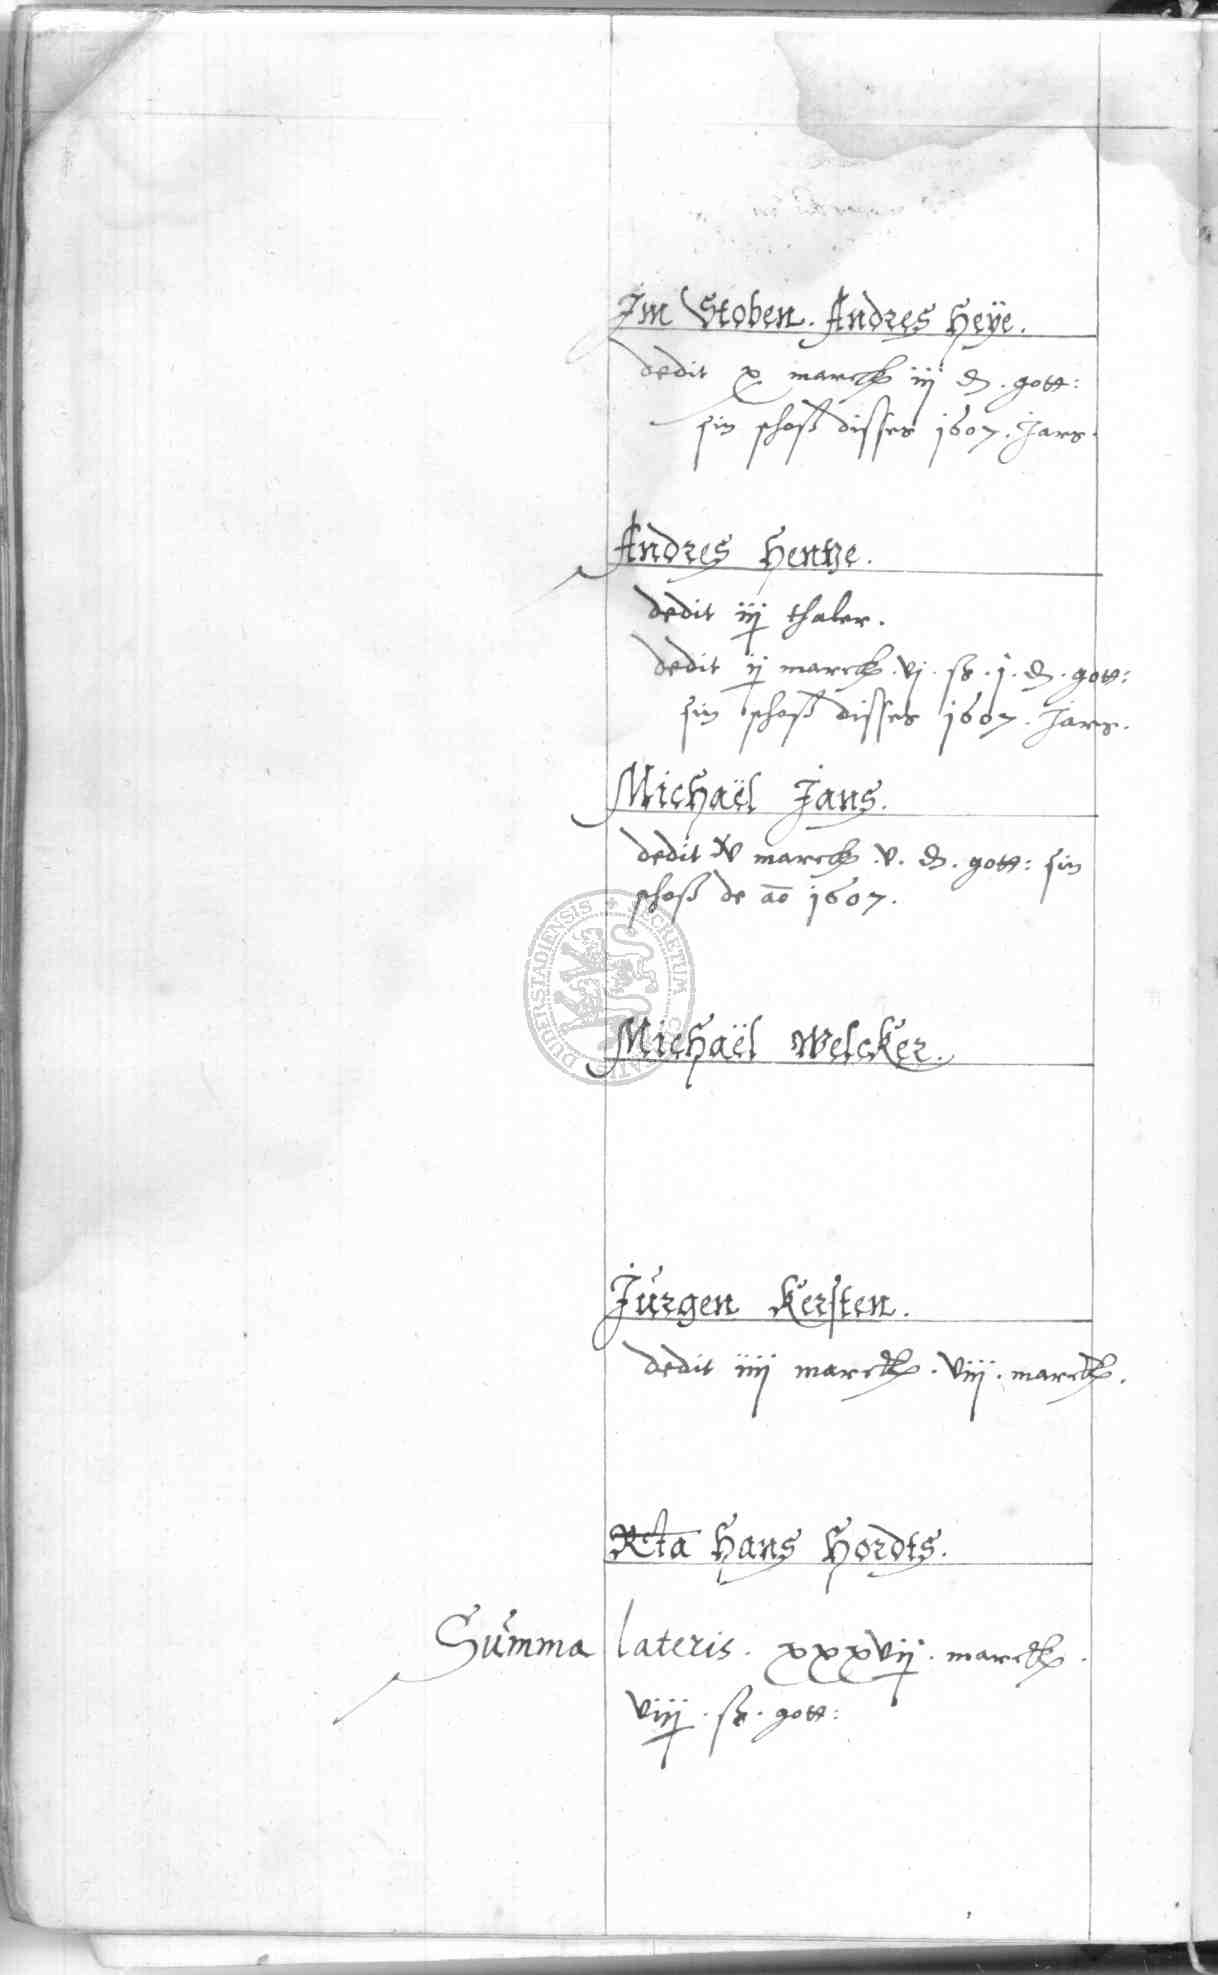 Im Stoben. Andres Heÿe.
dedit x marck iij d. gott:
sin schoß disses 1607. Jars.
Andres Hentze.
dedit iij thaler.
dedit ij marck. vj. ß. j. d. gott:
sin schoß disses 1607. Jars.
Michaël Jans.
dedit marck. v. d. gott: sin
schoß de ao 1607.
DUDERSTADIENSIS + SECRETUM CIVITATIS
Michaël Welcker.
Jürgen Kersten.
dedit iiij marck. viij. marck.
Rcta Hans Hordts.
Summa lateris. xxxvij. marck.
viij. ß. gott: